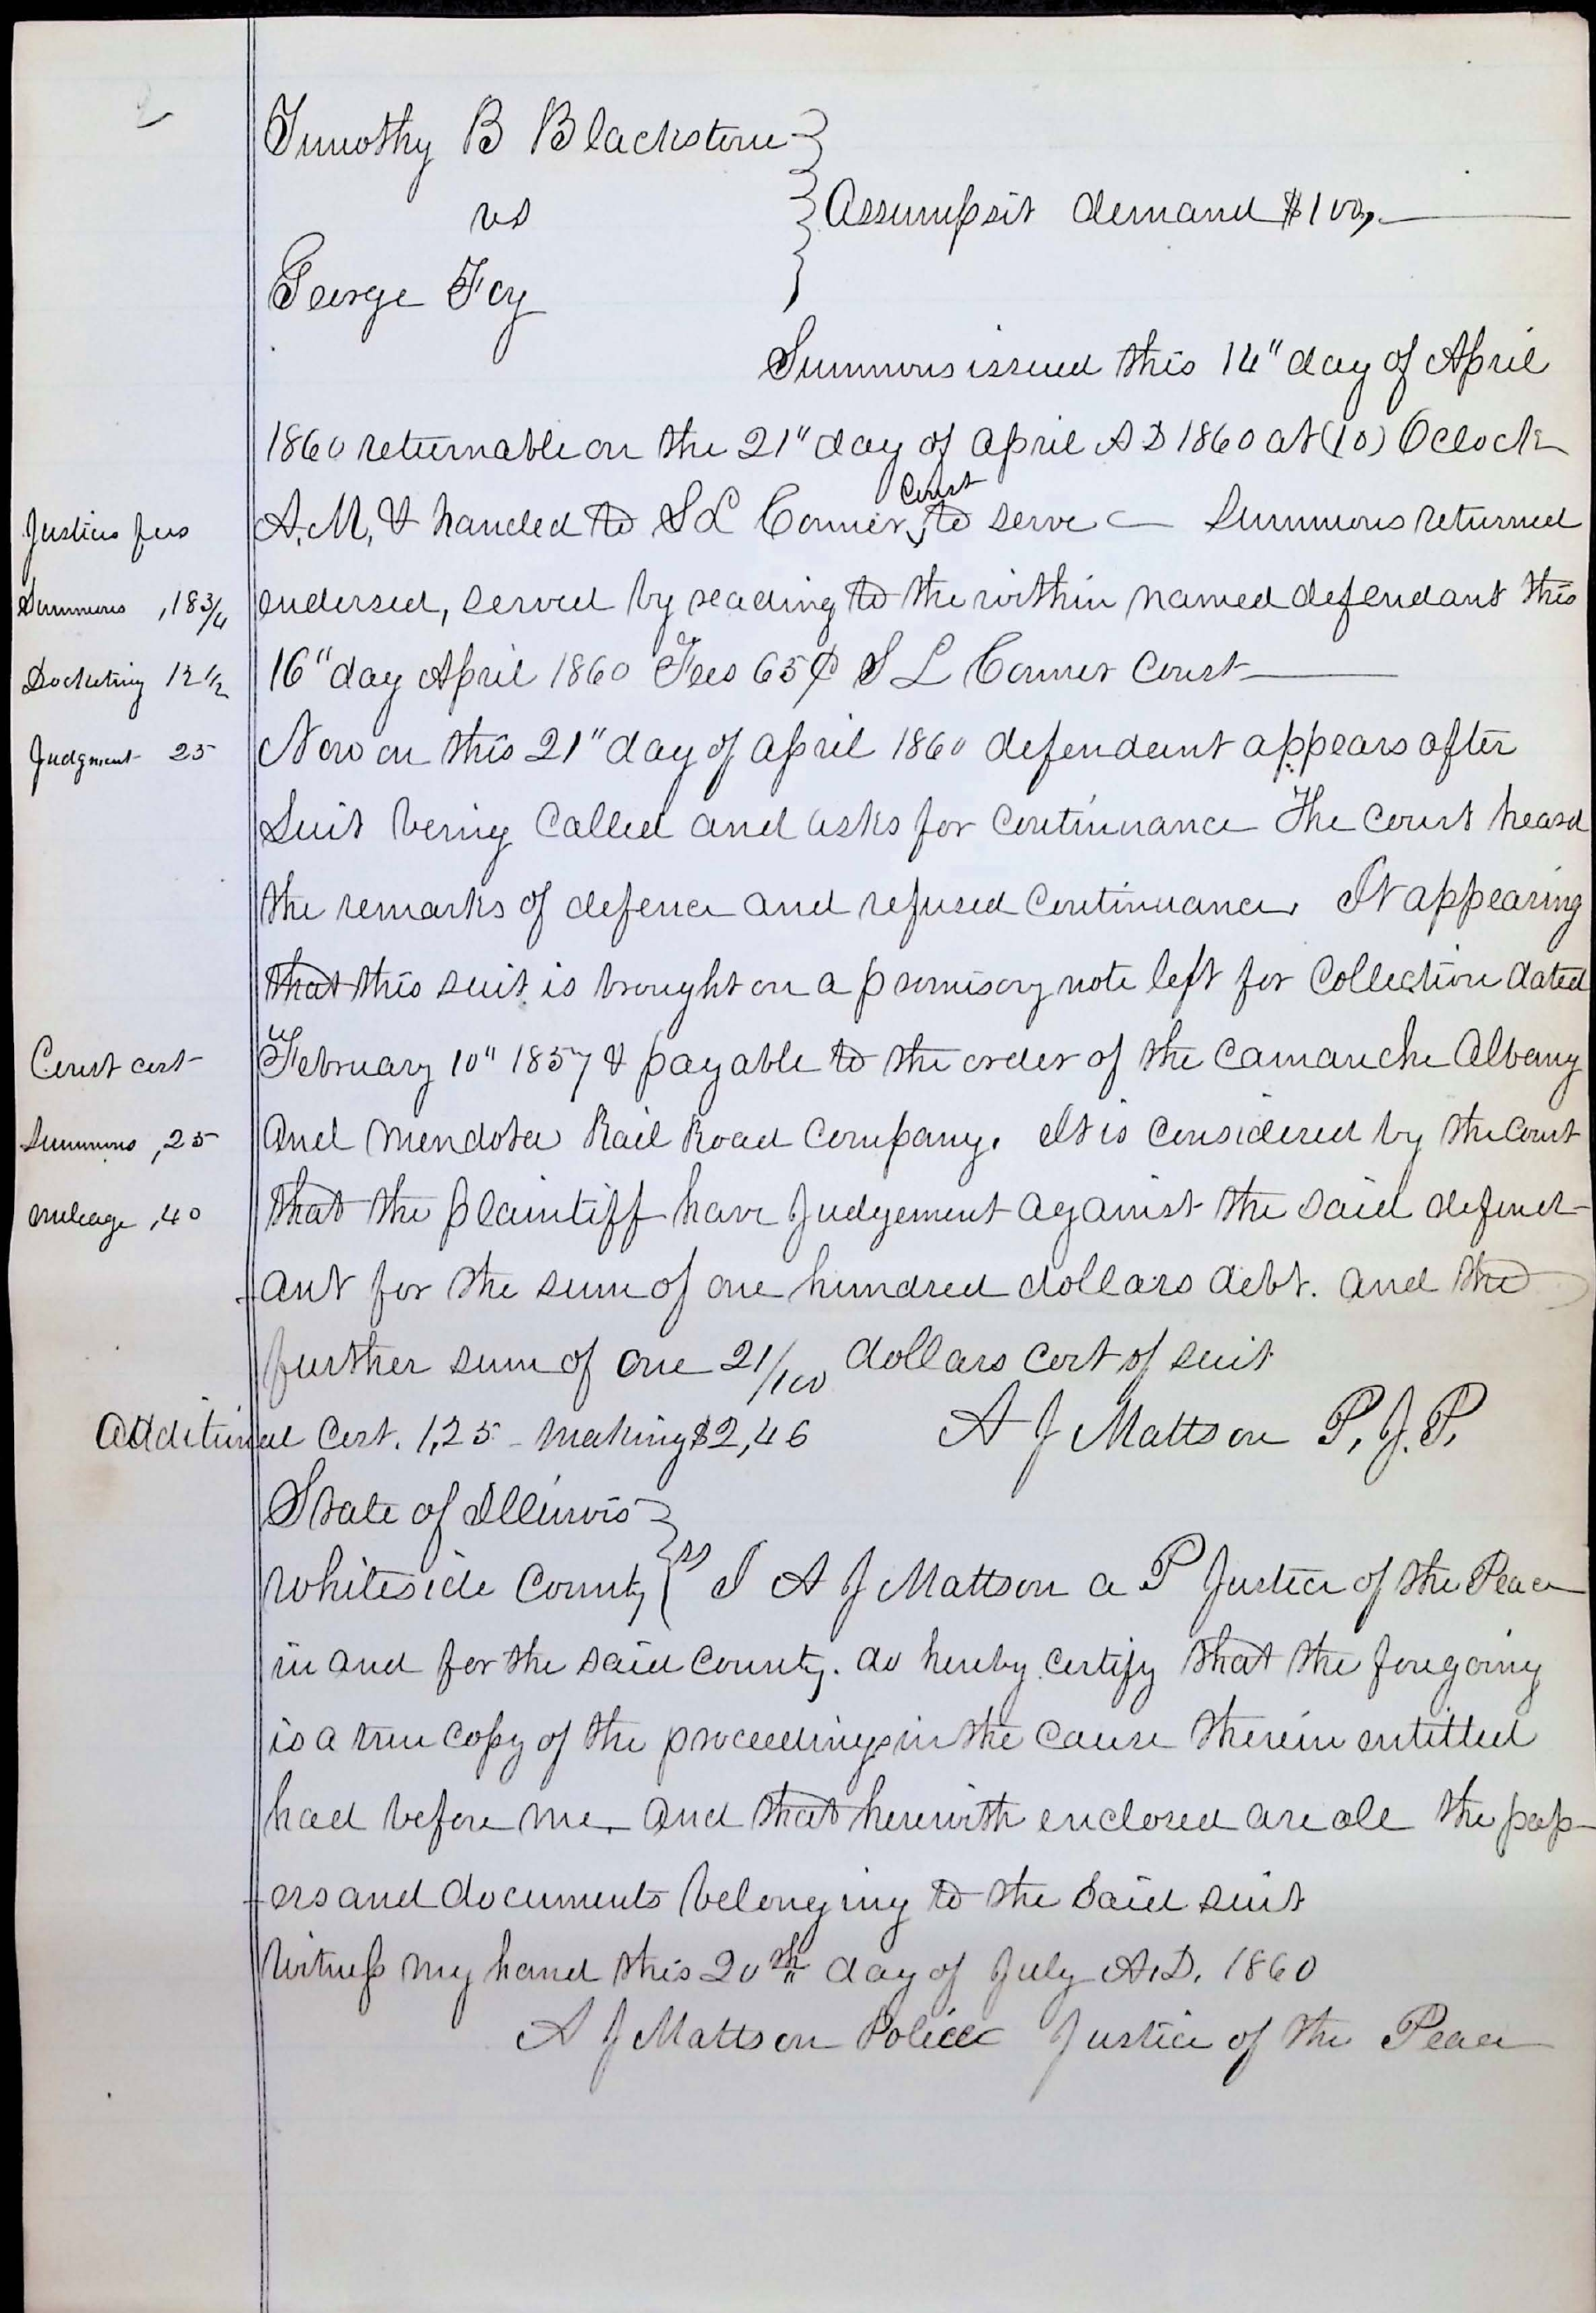 2
Timothy B Blackstone
vs
Assumpsit demand $100,
George Fey
Summons issued this 14" day of April
1860 returnable on the 21" day of April A D 1860 at (10) Oclock
A.M, & handed to S L Conner, Const to serve — Summons returned
endersed, served by reading to the within named defendant this
16" day April 1860 Fees 65¢ S L Conner Const
Now on this 21" day of April 1860 defendant appears after
Suit being Called and asks for Continuance The Court heard
the remarks of defence and refused Continuance. It appearing
that this suit is brought on a promisory note left for Collection dated
February 10" 1857 & payable to the order of the Camanche Albany
and Mendota Rail Road Company. It is Considered by the Court
that the plaintiff have Judgement against the said defend-
ant for the sum of one hundred dollars debt. and the
further sum of one 21/100 dollars Cost of suit
Additional Cost. 1,25 - Making $2,46
A J Mattson P. J. P.
State of Illinois
Whiteside County ss I A J Mattson a P Justice of the Peace
in and for the said County. do hereby Certify that the foregoing
is a true Copy of the proceedings in the Cause therein entitled
had before me and that herewith enclosed are all the pap-
ers and documents belonging to the said suit
Witness my hand this 20th day of July A.D. 1860
A J Mattson Police Justice of the Peace
Justices fees
Summons ,18 3/4
Docketing 12 1/2
Judgment 25
Const cost
Summons ,25
Mileage ,40